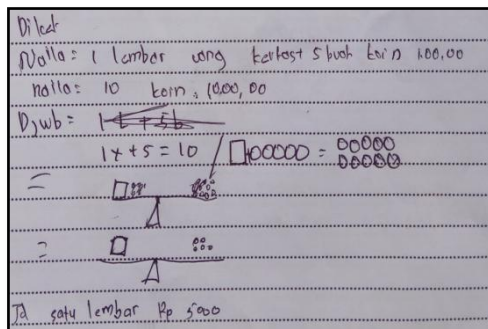 Diket
Nolla = 1 lembar uang kertas + 5 buah koin 1.00,00
nollo = 10 koin. 1000, 00
Djwb = 1 t + 5 b
1x + 5 = 10 □+00000 = 00000
00000
=
=
Jd satu lembar Rp 5000